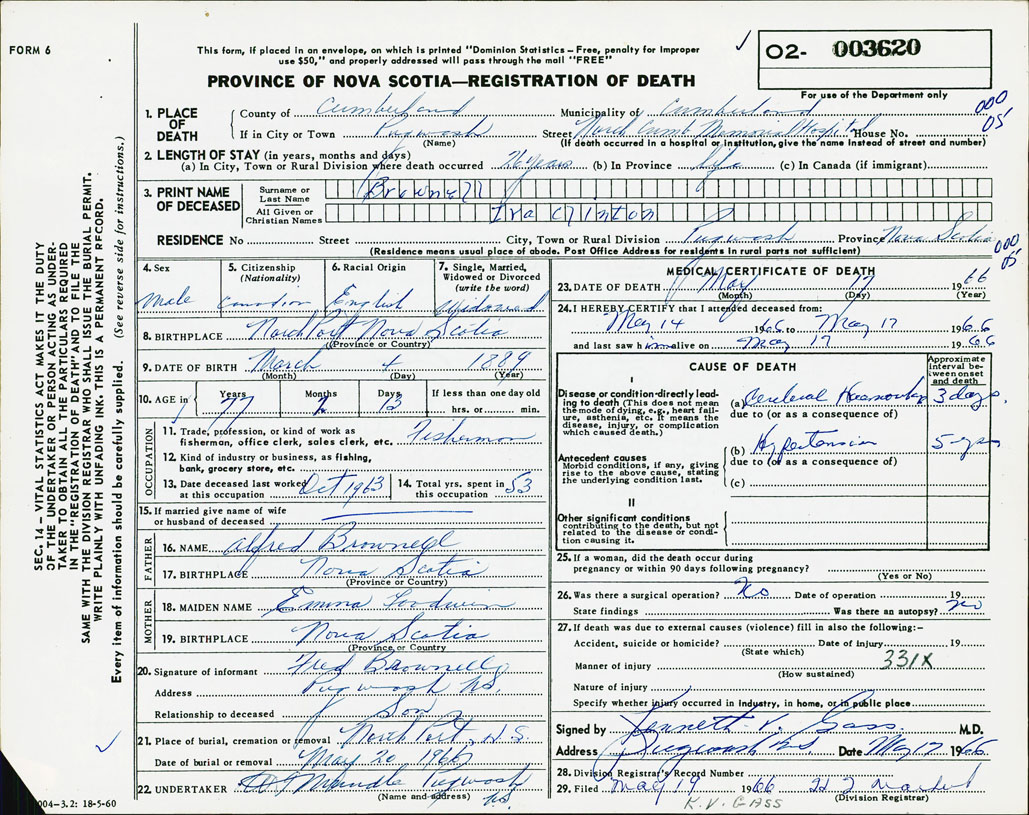 FORM 6
This form, if placed in an envelope, on which is printed "Dominion Statistics – Free, penalty for improper
use $50," and properly addressed will pass through the mail "FREE"
✓ 02- 003620
For use of the Department only
PROVINCE OF NOVA SCOTIA—REGISTRATION OF DEATH
SEC. 14 – VITAL STATISTICS ACT MAKES IT THE DUTY
OF THE UNDERTAKER OR PERSON ACTING AS UNDER-
TAKER TO OBTAIN ALL THE PARTICULARS REQUIRED
IN THE "REGISTRATION OF DEATH" AND TO FILE THE
SAME WITH THE DIVISION REGISTRAR WHO SHALL ISSUE THE BURIAL PERMIT.
WRITE PLAINLY WITH UNFADING INK. THIS IS A PERMANENT RECORD.
Every item of information should be carefully supplied. (See reverse side for instructions.)
1. PLACE OF DEATH
County of Cumberland Municipality of Cumberland 000
If in City or Town Pugwash Street North Cumb. Memorial Hospital House No. 05
(Name) (If death occurred in a hospital or institution, give the name instead of street and number)
2. LENGTH OF STAY (in years, months and days)
(a) In City, Town or Rural Division where death occurred 76 years (b) In Province Life (c) In Canada (if immigrant)
3. PRINT NAME OF DECEASED
Surname or Last Name Brownell
All Given or Christian Names Ira Clinton
RESIDENCE No Street City, Town or Rural Division Pugwash Province Nova Scotia 000 05
(Residence means usual place of abode. Post Office Address for residents in rural parts not sufficient)
4. Sex Male
5. Citizenship (Nationality) Canadian
6. Racial Origin English
7. Single, Married, Widowed or Divorced (write the word) Widowed
8. BIRTHPLACE North Port Nova Scotia
(Province or Country)
9. DATE OF BIRTH March 4 1889
(Month) (Day) (Year)
10. AGE in Years 77 Months 2 Days 13 If less than one day old hrs. or min.
OCCUPATION
11. Trade, profession, or kind of work as
fisherman, office clerk, sales clerk, etc. Fisherman
12. Kind of industry or business, as fishing,
bank, grocery store, etc.
13. Date deceased last worked at this occupation Oct 1963
14. Total yrs. spent in this occupation 53
15. If married give name of wife
or husband of deceased
FATHER
16. NAME Alfred Brownell
17. BIRTHPLACE Nova Scotia
(Province or Country)
MOTHER
18. MAIDEN NAME Emma
19. BIRTHPLACE Nova Scotia
(Province or Country
20. Signature of informant Fred Brownell
Address Pugwash NS.
Relationship to deceased Son
21. Place of burial, cremation or removal North Port, N.S.
Date of burial or removal May 20 1966
✓
22. UNDERTAKER Pugwash NS.
(Name and address)
004-3.2: 18-5-60
MEDICAL CERTIFICATE OF DEATH
23. DATE OF DEATH May 17 1966
(Month) (Day) (Year)
24. I HEREBY CERTIFY that I attended deceased from:
May 14 1966 to May 17 1966
and last saw him alive on May 17 1966
CAUSE OF DEATH
Approximate interval between onset and death
I
Disease or condition directly leading to death (This does not mean
the mode of dying, e.g., heart failure, asthenia, etc. It means the
disease, injury, or complication which caused death.)
(a) Cerebral Hemorrhage 3 days.
due to (or as a consequence of)
Antecedent causes
Morbid conditions, if any, giving
rise to the above cause, stating
the underlying condition last.
(b) Hypertension 5 yrs
due to (or as a consequence of)
(c)
II
Other significant conditions
contributing to the death, but not
related to the disease or condition causing it.
25. If a woman, did the death occur during
pregnancy or within 90 days following pregnancy?
(Yes or No)
26. Was there a surgical operation? No Date of operation 19
State findings Was there an autopsy? No
27. If death was due to external causes (violence) fill in also the following:-
Accident, suicide or homicide? Date of injury 19
(State which) 331X
Manner of injury
(How sustained)
Nature of injury
Specify whether injury occurred in industry, in home, or in public place
Signed by Kenneth V. Gass M.D.
Address Pugwash NS Date May 17 1966
28. Division Registrar's Record Number
29. Filed May 19 1966
(Division Registrar)
K.V. GASS